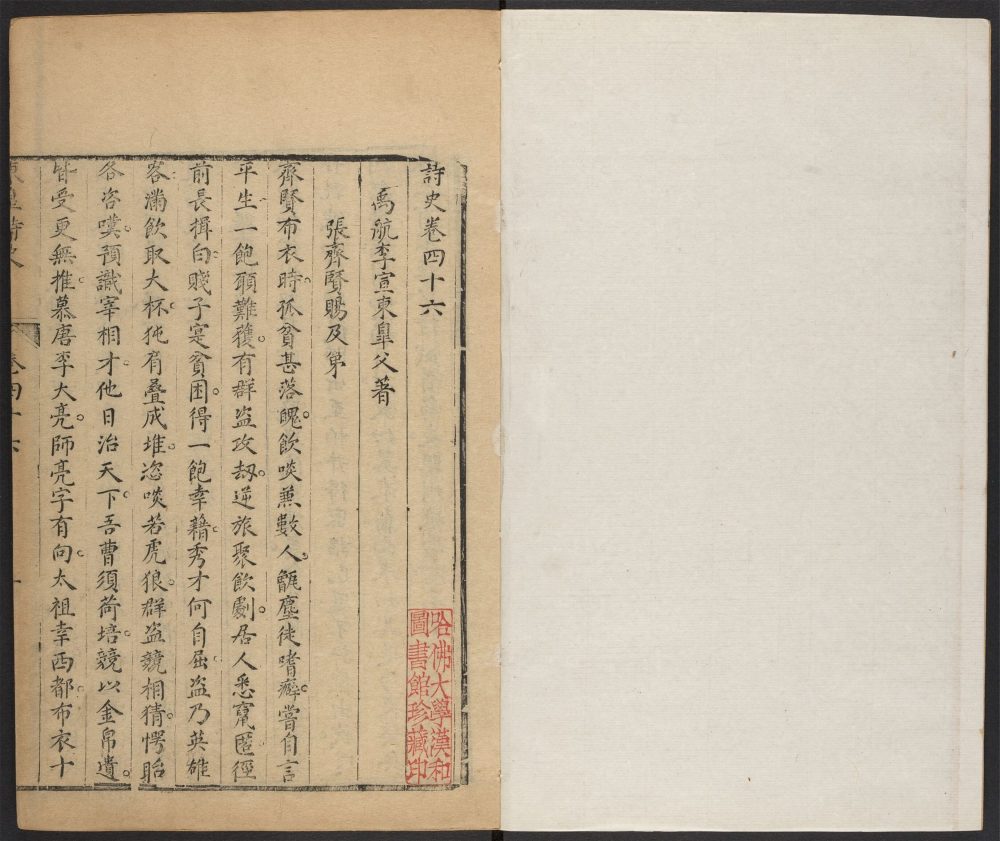 詩史卷四十六
禹航李宣東臯父著
張齊賢賜及第
齊賢布衣時孤貧甚落魄飲啖兼數人甑塵徒嗜癖嘗自言
平生一飽願難獲有群盜攻刼逆旅聚飲劇居人悉竄匿徑
前長揖白賤子寔貧困得一飽幸籍秀才何自屈盜乃英雄
客滿飲取大杯㹠肩叠成堆恣啖若虎狼群盜競相猜愕眙
各咨嘆預識宰相才他日治天下吾曹須荷培競以金帛遺
皆受更無推慕唐李大亮師亮字有向太祖幸西都布衣十
卷四十六
一
哈佛大學漢和
圖書館珍藏印